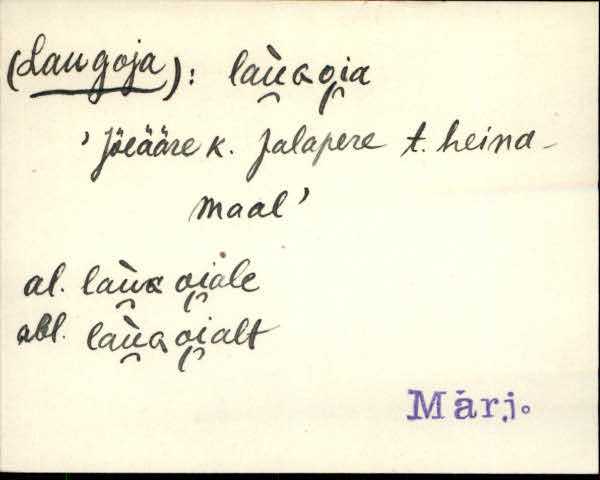 (Laugoja): lau̯ɢoi̯a
' Jõeääre k. Jalapere t. heina-
maal '
al. lau̯ɢ oi̯ale
abl. lau̯ɢ oi̯alt
Märj.